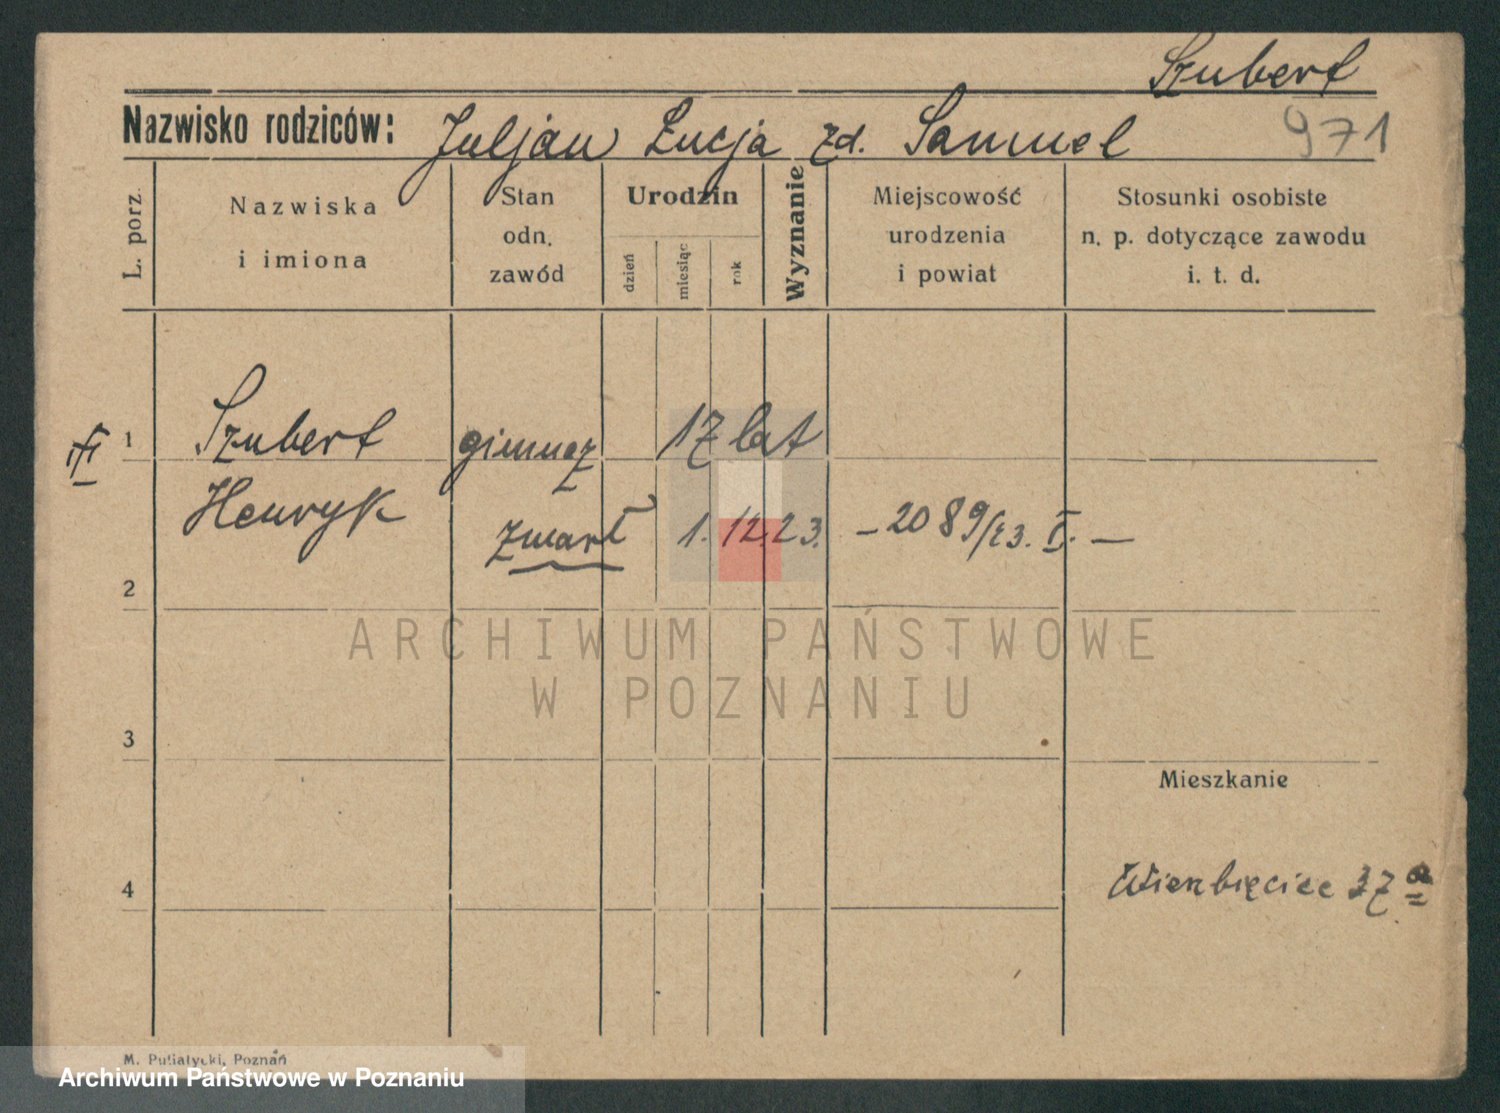 Szubert
Nazwisko rodziców: Juljan Łucja zd. Samuel 971
L. porz.
Nazwiska
i imiona
Stan
odn.
zawód
Urodzin
dzień
miesiąc
rok
Wyznanie
Miejscowość
urodzenia
i powiat
Stosunki osobiste
n. p. dotyczące zawodu
i. t. d.
1 Szubert gimnaz 17 lat
Henryk zmarł 1. 12. 23. – 2089/23. –
2
ARCHIWUM PAŃSTWOWE
W POZNANIU
3
Mieszkanie
4 Wierzbięcice 37 a
M. Putiatycki, Poznań
Archiwum Państwowe w Poznaniu